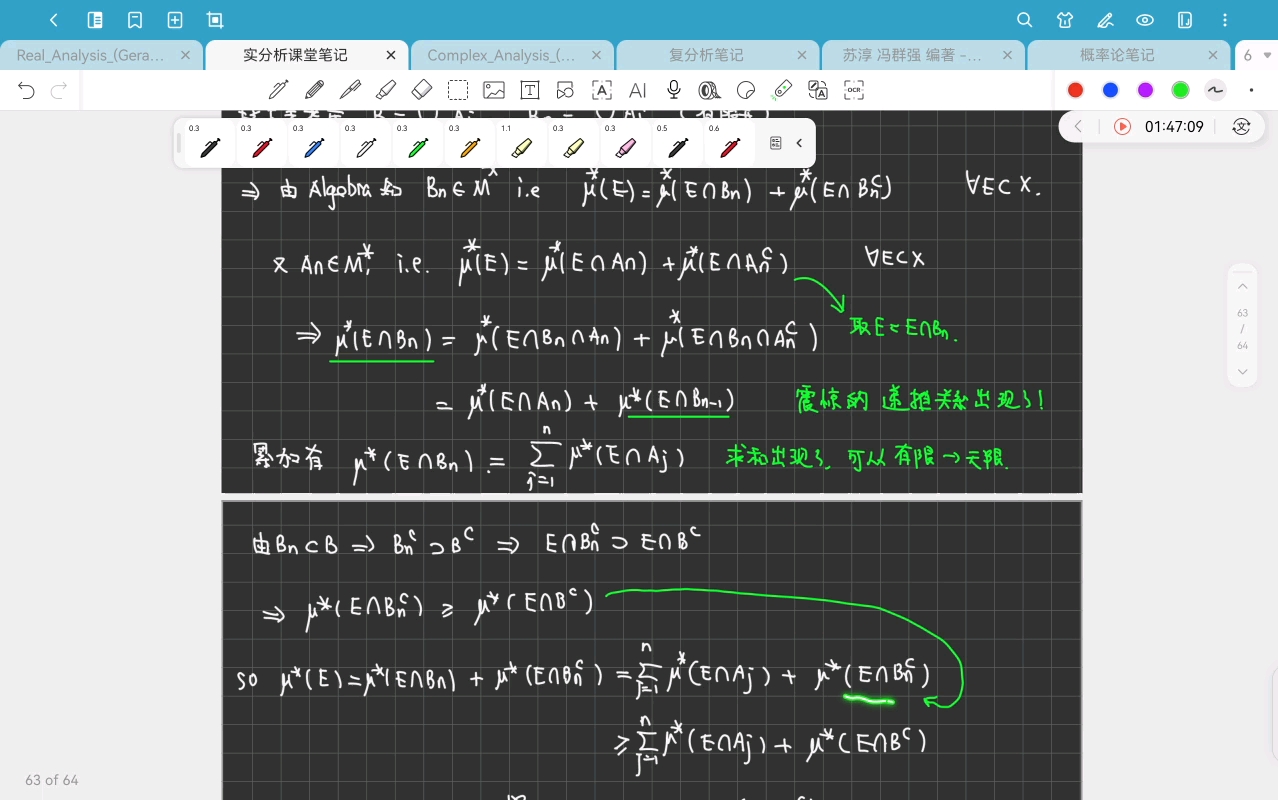 Real_Analysis_(Gera... ×
实分析课堂笔记 ×
Complex_Analysis_(... ×
复分析笔记 ×
苏淳 冯群强 编著 -... ×
概率论笔记 ×
6
AI
OCR
0.3 0.3 0.3 0.3 0.3 0.3 1.1 0.3 0.3 0.5 0.6
01:47:09
⇒ 由 Algebra 知 Bn∈M* i.e μ*(E)=μ*(E∩Bn)+μ*(E∩Bn^c) ∀E⊂X.
又 An∈M*, i.e. μ*(E)=μ*(E∩An)+μ*(E∩An^c) ∀E⊂X
取E=E∩Bn.
⇒ μ*(E∩Bn)=μ*(E∩Bn∩An)+μ*(E∩Bn∩An^c)
=μ*(E∩An)+μ*(E∩Bn-1) 震惊的 递推关系出现了!
累加有 μ*(E∩Bn)=∑_{j=1}^n μ*(E∩Aj) 求和出现了, 可以有限→无限.
由Bn⊂B ⇒ Bn^c⊃B^c ⇒ E∩Bn^c⊃E∩B^c
⇒ μ*(E∩Bn^c)≥μ*(E∩B^c)
so μ*(E)=μ*(E∩Bn)+μ*(E∩Bn^c)=∑_{j=1}^n μ*(E∩Aj)+μ*(E∩Bn^c)
≥∑_{j=1}^n μ*(E∩Aj)+μ*(E∩B^c)
63
/
64
63 of 64